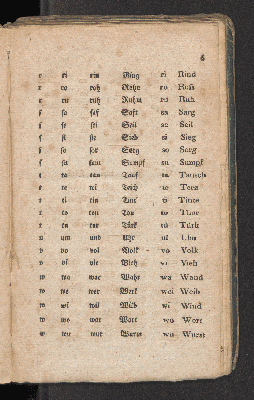 6
r ri rin Ring ri Rind
r ro roh Rohr ro Roß
r ru ruh Ruhm ru Ruh
ſ ſa ſaf Saft sa Sarg
ſ ſe ſei Seil se Seil
ſ ſi ſie Sieb si Sieg
ſ ſo ſor Sorg so Sorg
ſ ſu ſum Sumpf su Sumpf
t ta tau Tauf ta Tausch
t te tei Teich te
t ti tin Tint ti Tinte
t to ton Ton to Thor
t tu tür Türk tu Türk
u um und Uhr ul Uhu
v vo vol Volk vo Volk
v vi vie Vieh vi Vieh
w wa war Wahr wa Wand
w we wer Werk wei Weib
w wi wil Wild wi Wind
w wo wor Wort wo Wort
w wu wur Wurm wu Wurst